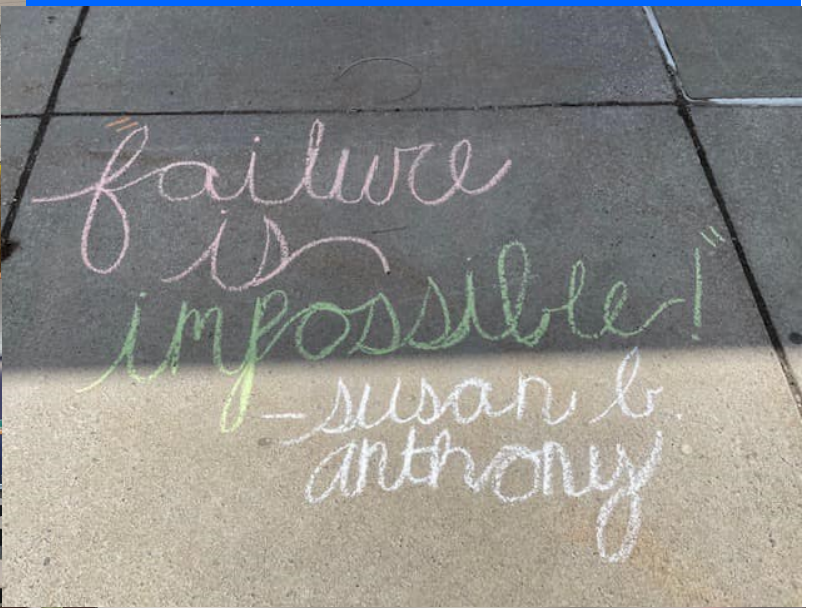 "failure
is
impossible!"
-susan b.
anthony